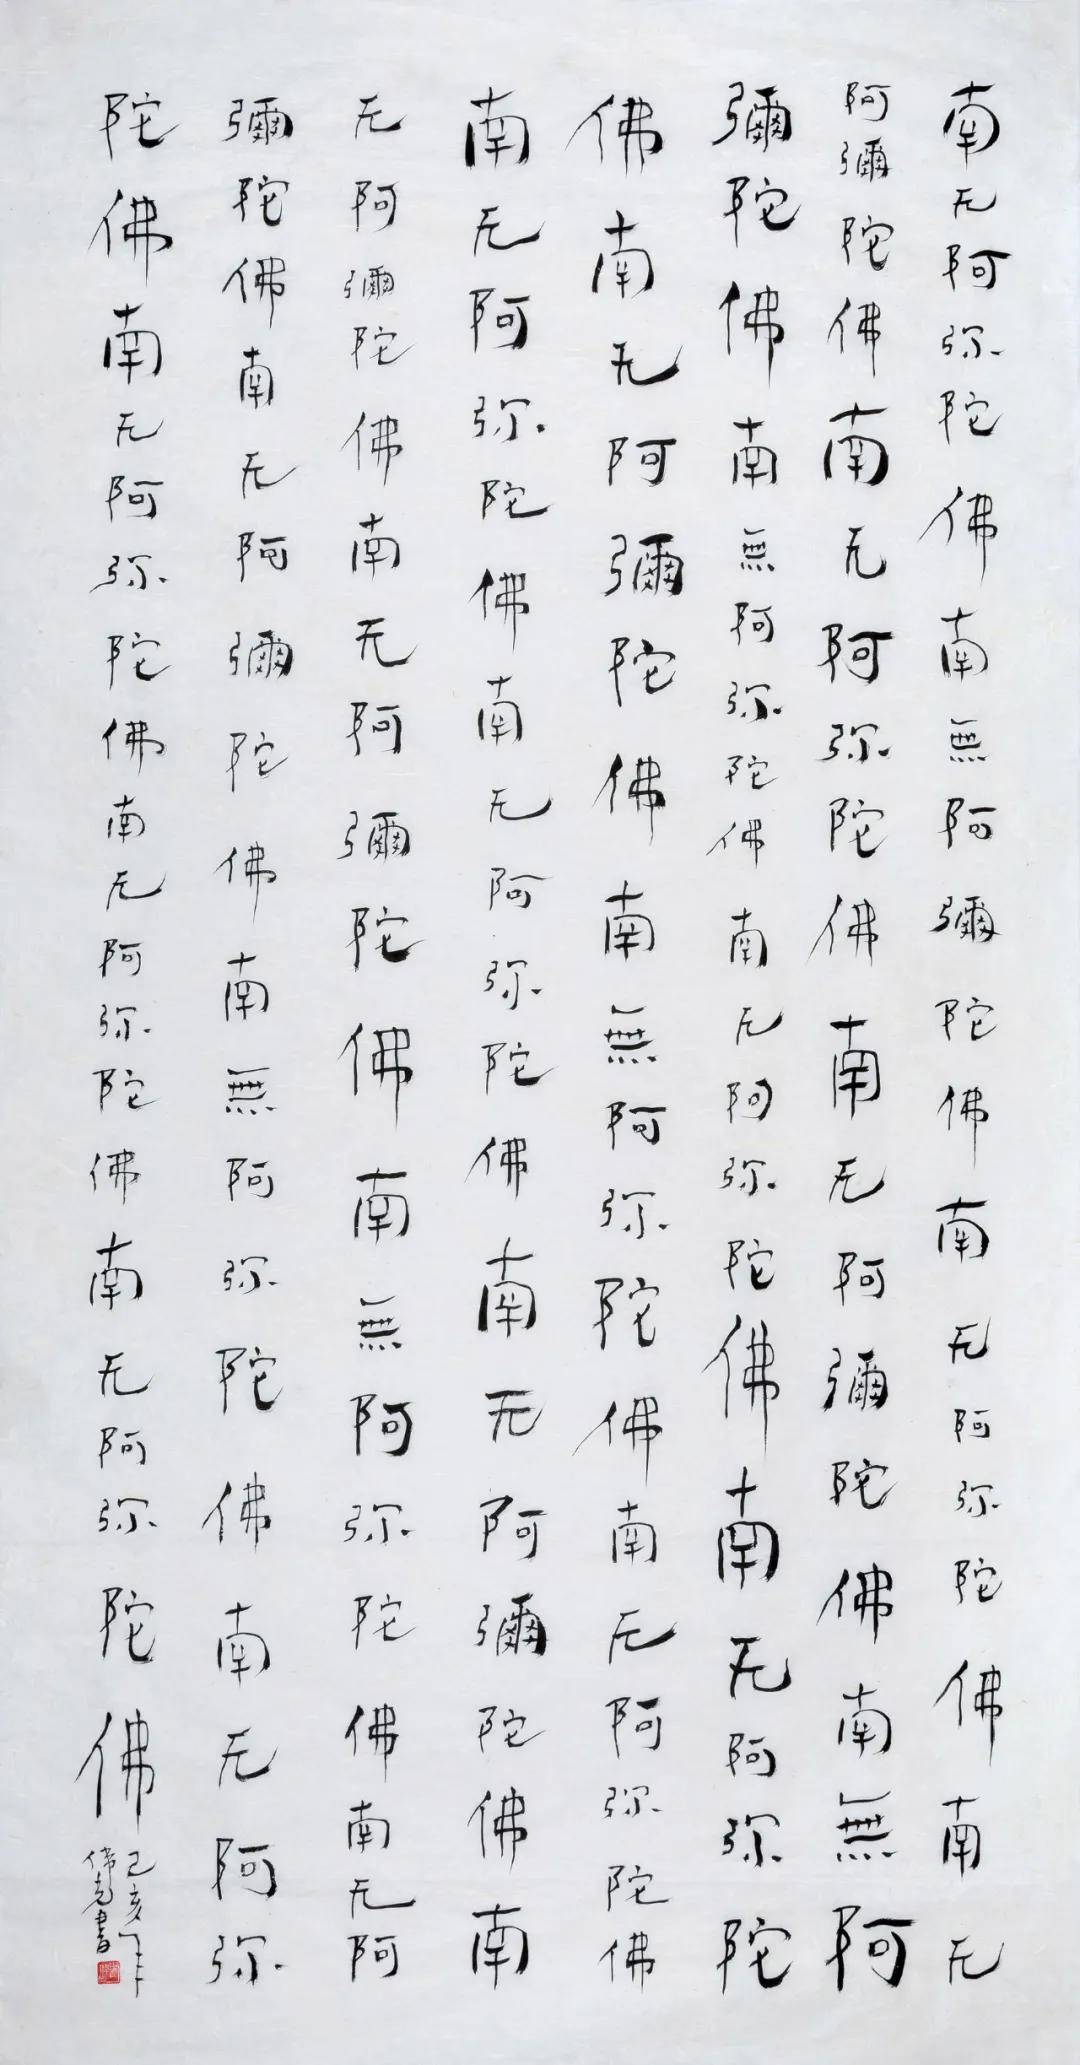 南无阿弥陀佛南無阿彌陀佛南无阿弥陀佛南无
阿彌陀佛南无阿弥陀佛南无阿彌陀佛南無阿
彌陀佛南無阿弥陀佛南无阿弥陀佛南无阿弥陀
佛南无阿彌陀佛南無阿弥陀佛南无阿弥陀佛
南无阿弥陀佛南无阿弥陀佛南无阿彌陀佛南
无阿彌陀佛南无阿彌陀佛南無阿弥陀佛南无阿
彌陀佛南无阿彌陀佛南無阿弥陀佛南无阿弥
陀佛南无阿弥陀佛南无阿弥陀佛南无阿弥陀佛
己亥年
書